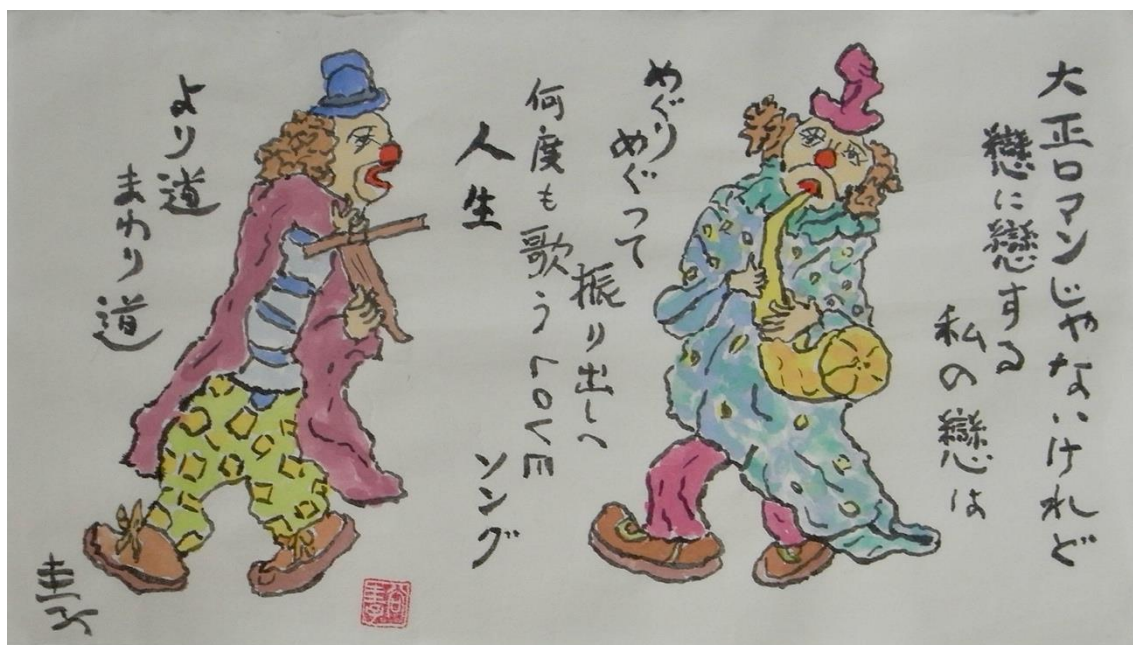 大正ロマンじゃないけれど
戀に戀する
私の戀は
めぐり
めぐって
振り出しへ
何度も歌うLOVE
ソング
人生
より道
まわり道
圭子